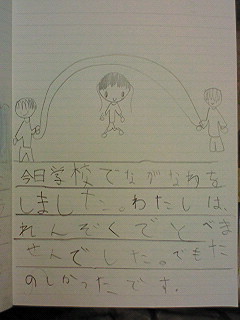 今日学校でながなわを
しました。わたしは、
れんぞくでとべま
せんでした。でもた
のしかったです。